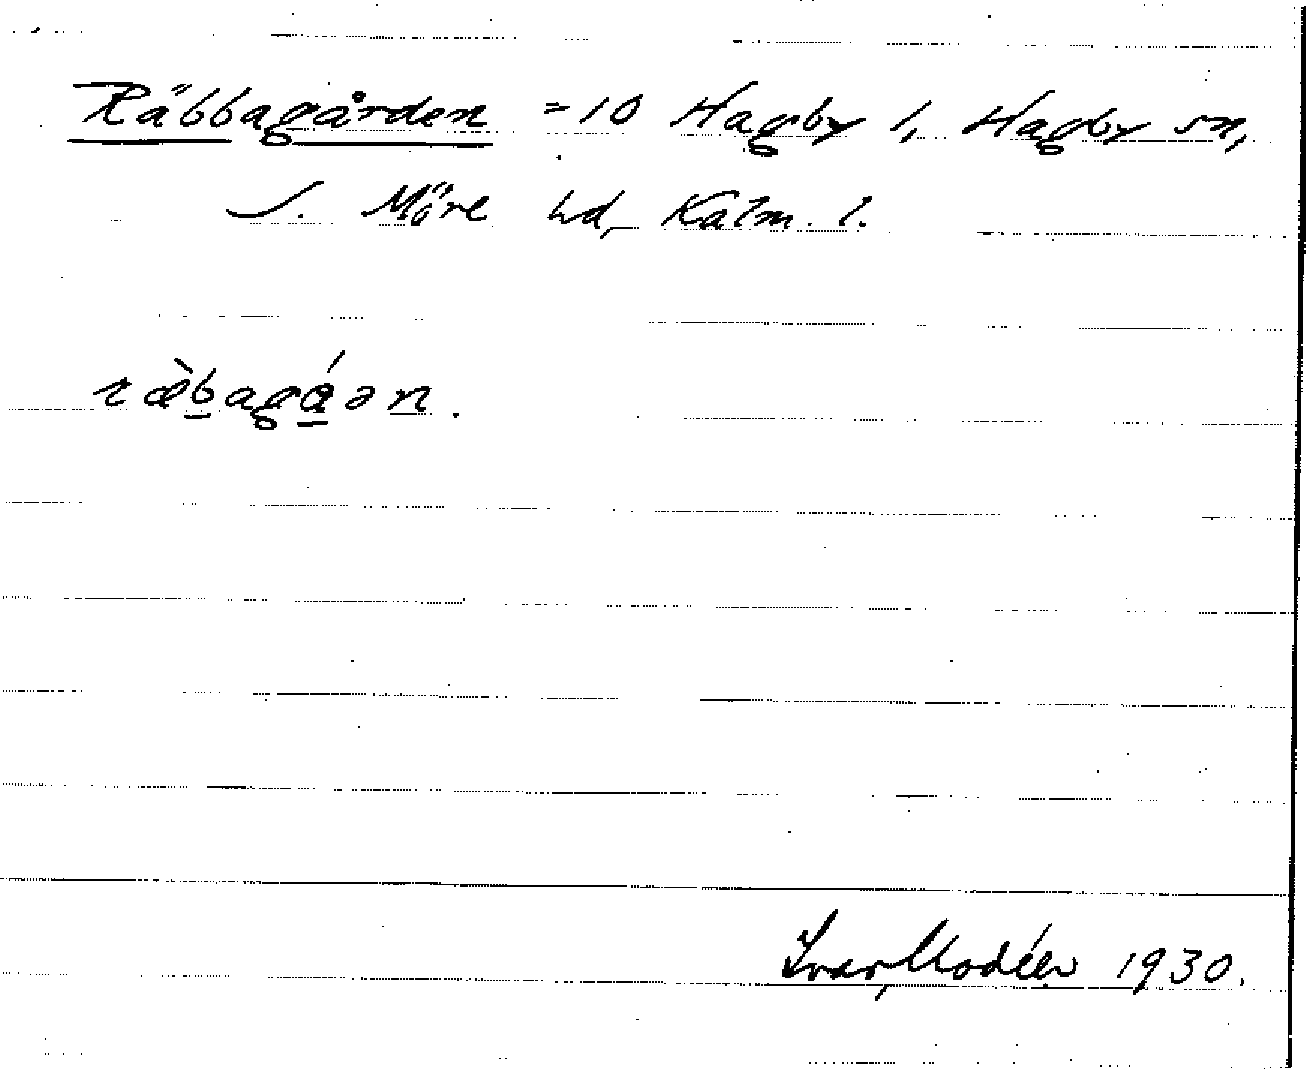 Räbbagården = 10 Hagby 1, Hagby sn,
S. Möre hd, Kalm. l.
ræ̀bagáən.
Ivar Modéer 1930.